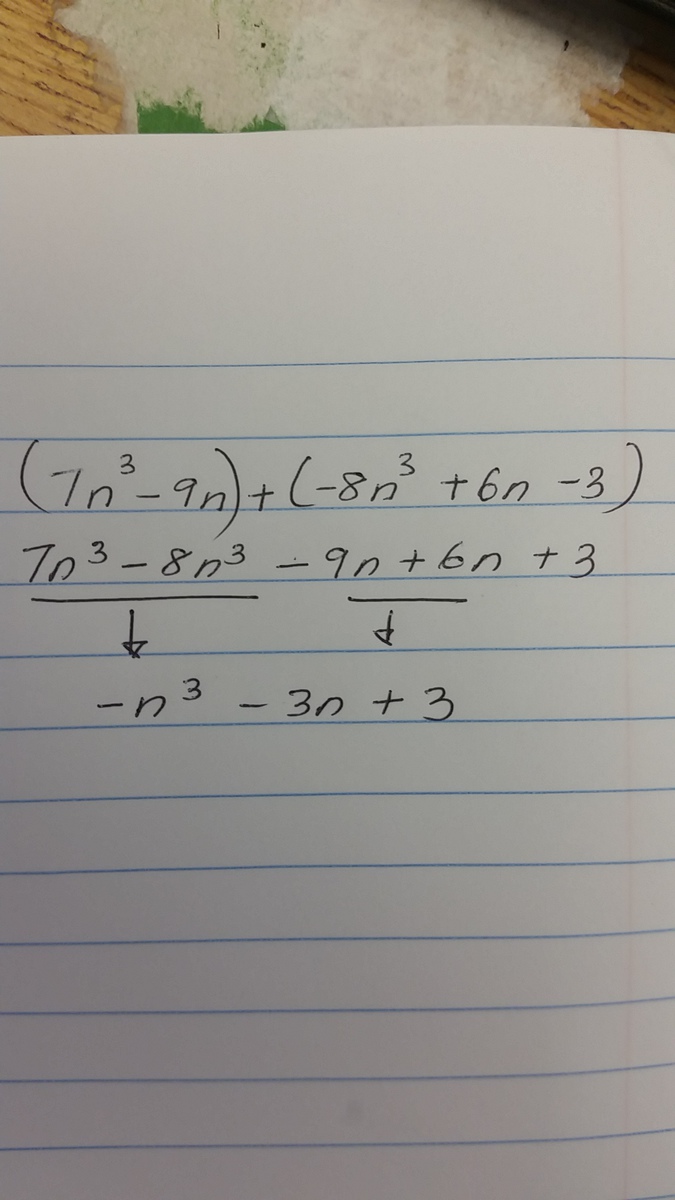 (7n³ - 9n) + (-8n³ + 6n - 3)
7n³ - 8n³ - 9n + 6n + 3
-n³ - 3n + 3